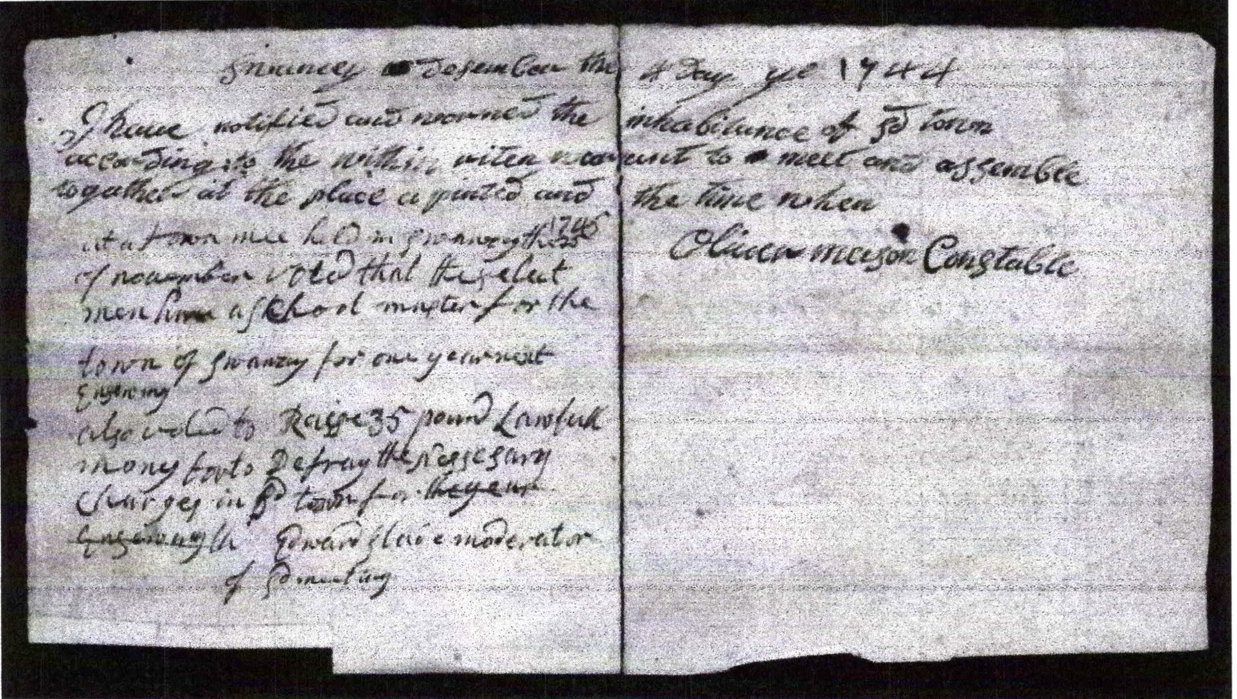 Swanzey Desember the 4 Day ye 1744
I have notified and worned the inhabitance of sd town
according to the within riten warant to meet and assemble
togather at the place apinted and the time when
Oliver mason Constable
at a town mee held in Swanzey the 1745
of november voted that the select
men hire a School master for the
town of Swanzey for one year next
Ensewing
also voted to Raise 35 pound Lawfull
mony for to Defray the Nessesary
Charges in sd town for the year
Edward Slade moderator
of sd meeting